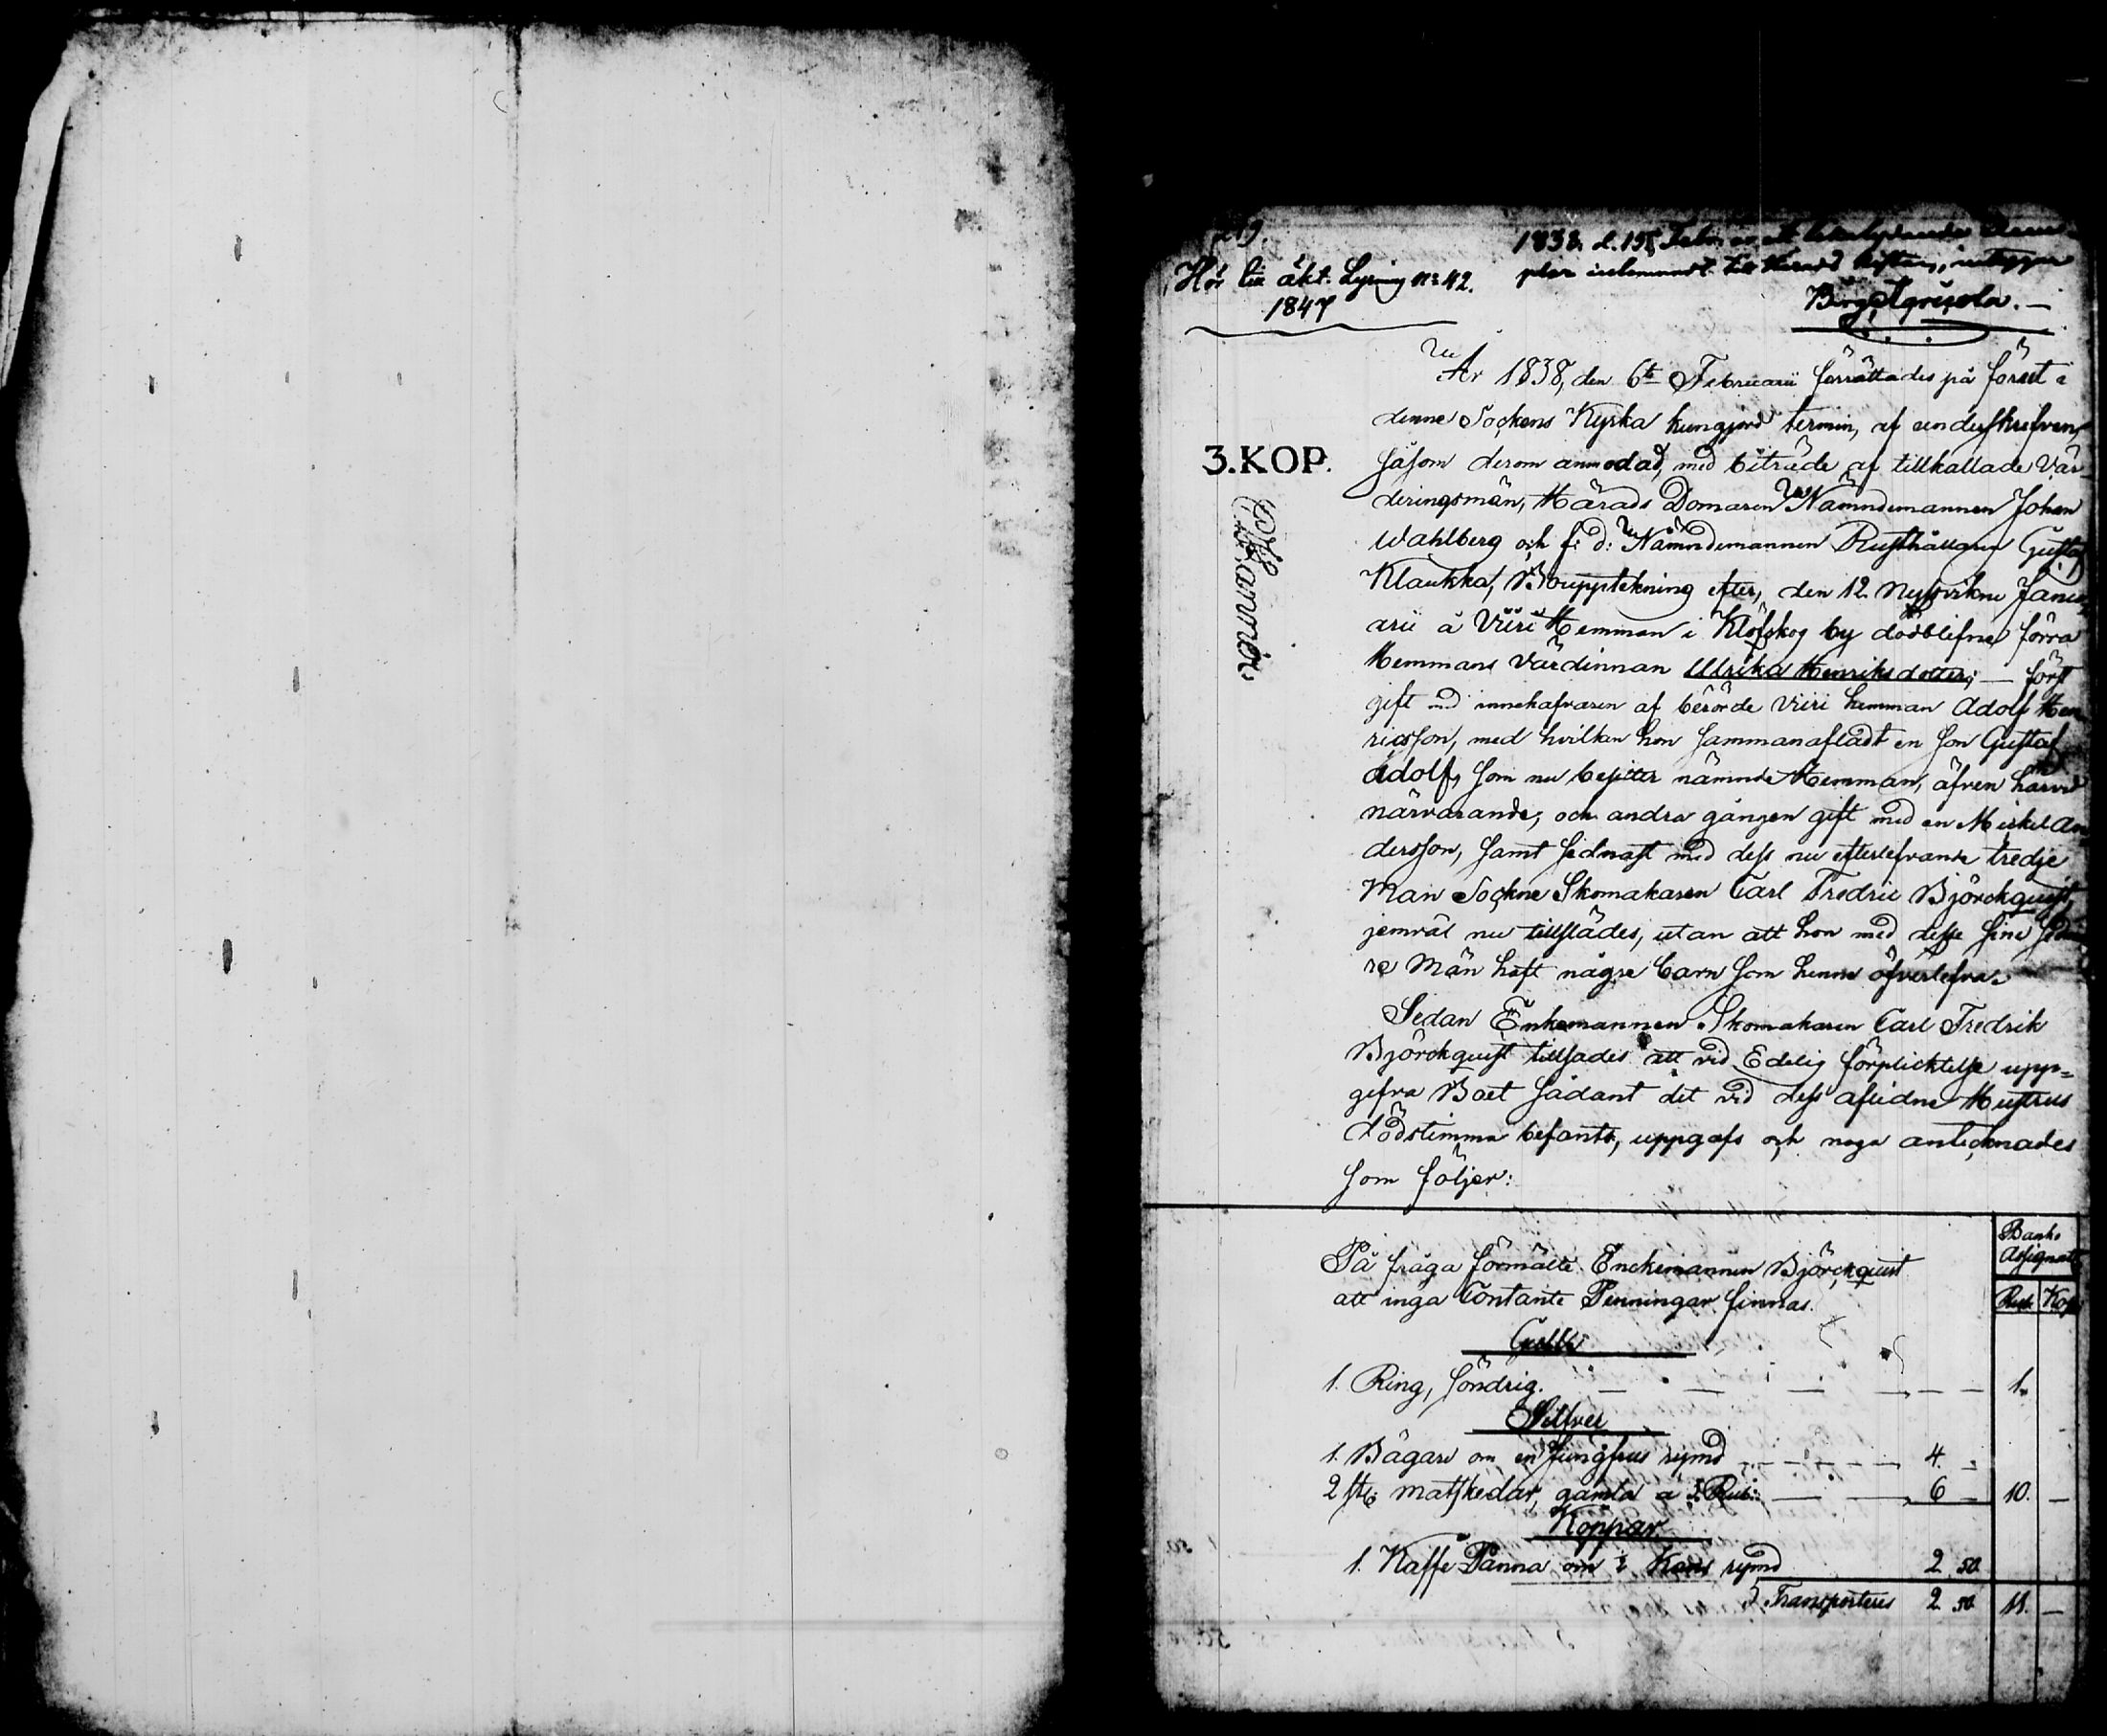 Hör till äkt. Lysning nr: 42.
1847
1838. d. 19 Febr. är ett
plar inlemnadt till Härads Rätten, intygar
Birg. Agricola.
År 1838, den 6te Februarii förrättades på förut i
denne Sockens Kyrka kungjord termin, af underskrefven,
såsom derom anmodad, med biträde af tillkallade Vär-
deringsmän, Härads Domaren Nämndemannen Johan
Wahlberg och f: d: Nämndemannen Rusthållaren Gustaf
Klaukka, Bouppteckning efter, den 12 Nystvikne Janu-
arii å Viiri Hemman i Klöfskog by dödblifne förra
Hemmans Värdinnan Ulrika Henriksdotter; — först
gift med innehafvaren af berörde Viiri hemman Adolf Hen
ricsson, med hvilken hon sammanafladt en son Gustaf
Adolf, som nu besitter nämnde Hemman, äfven härvid
närvarande; och andra gången gift med en Mickel An
dersson, samt sednast med dess nu efterlefvande tredje
Man Sockne Skomakaren Carl Fredric Björckquist,
jemväl nu tillstädes, utan att hon med desse sine sedna
re Män haft några barn som henne öfverlefva.
Sedan Enkemannen Skomakaren Carl Fredrik
Björckquist tillsades att vid Edelig förplicktelse upp=
gifva Boet sådant det vid dess aflidne Hustrus
dödstimma befants, uppgafs och noga antecknades
som följer:
3. KOP.
Banko
Assignat:
Rub: Kop:
På fråga förmälte Enckemannen Björckquist
att inga Contante Penningar finnas.
Guld
1. Ring, söndrig. — — — — — 1. 
Silfver
1. Bägare om en Jungfrus rymd — — — 4. —
2 st: matskedar, gamla a 3 Rub: — — 6 — 10. —
Koppar
1. Kaffe Panna om ½ Kans rymd 2 50
Transporteres 2 50 11. —